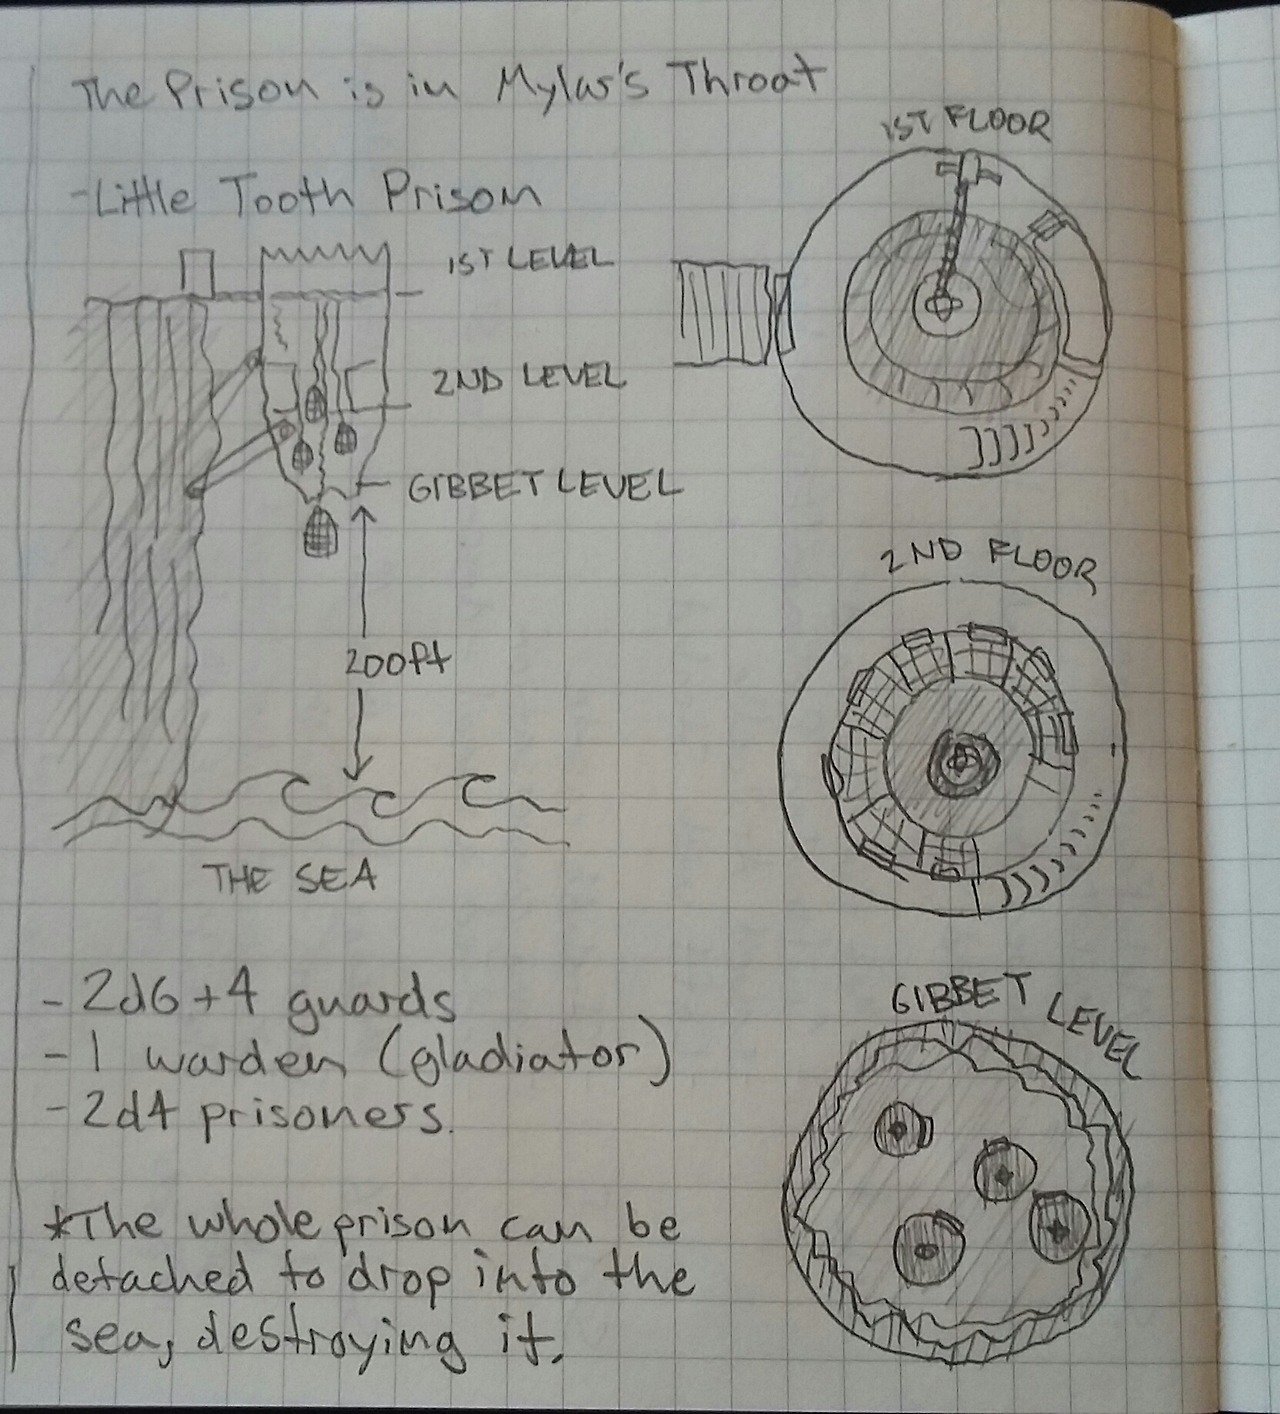 The Prison is in Mylar's Throat
-Little Tooth Prison
1ST LEVEL
2ND LEVEL
GIBBET LEVEL
200ft
THE SEA
1ST FLOOR
2ND FLOOR
GIBBET LEVEL
- 2d6+4 guards
- 1 warden (gladiator)
- 2d4 prisoners.
*The whole prison can be
detached to drop into the
sea, destroying it.